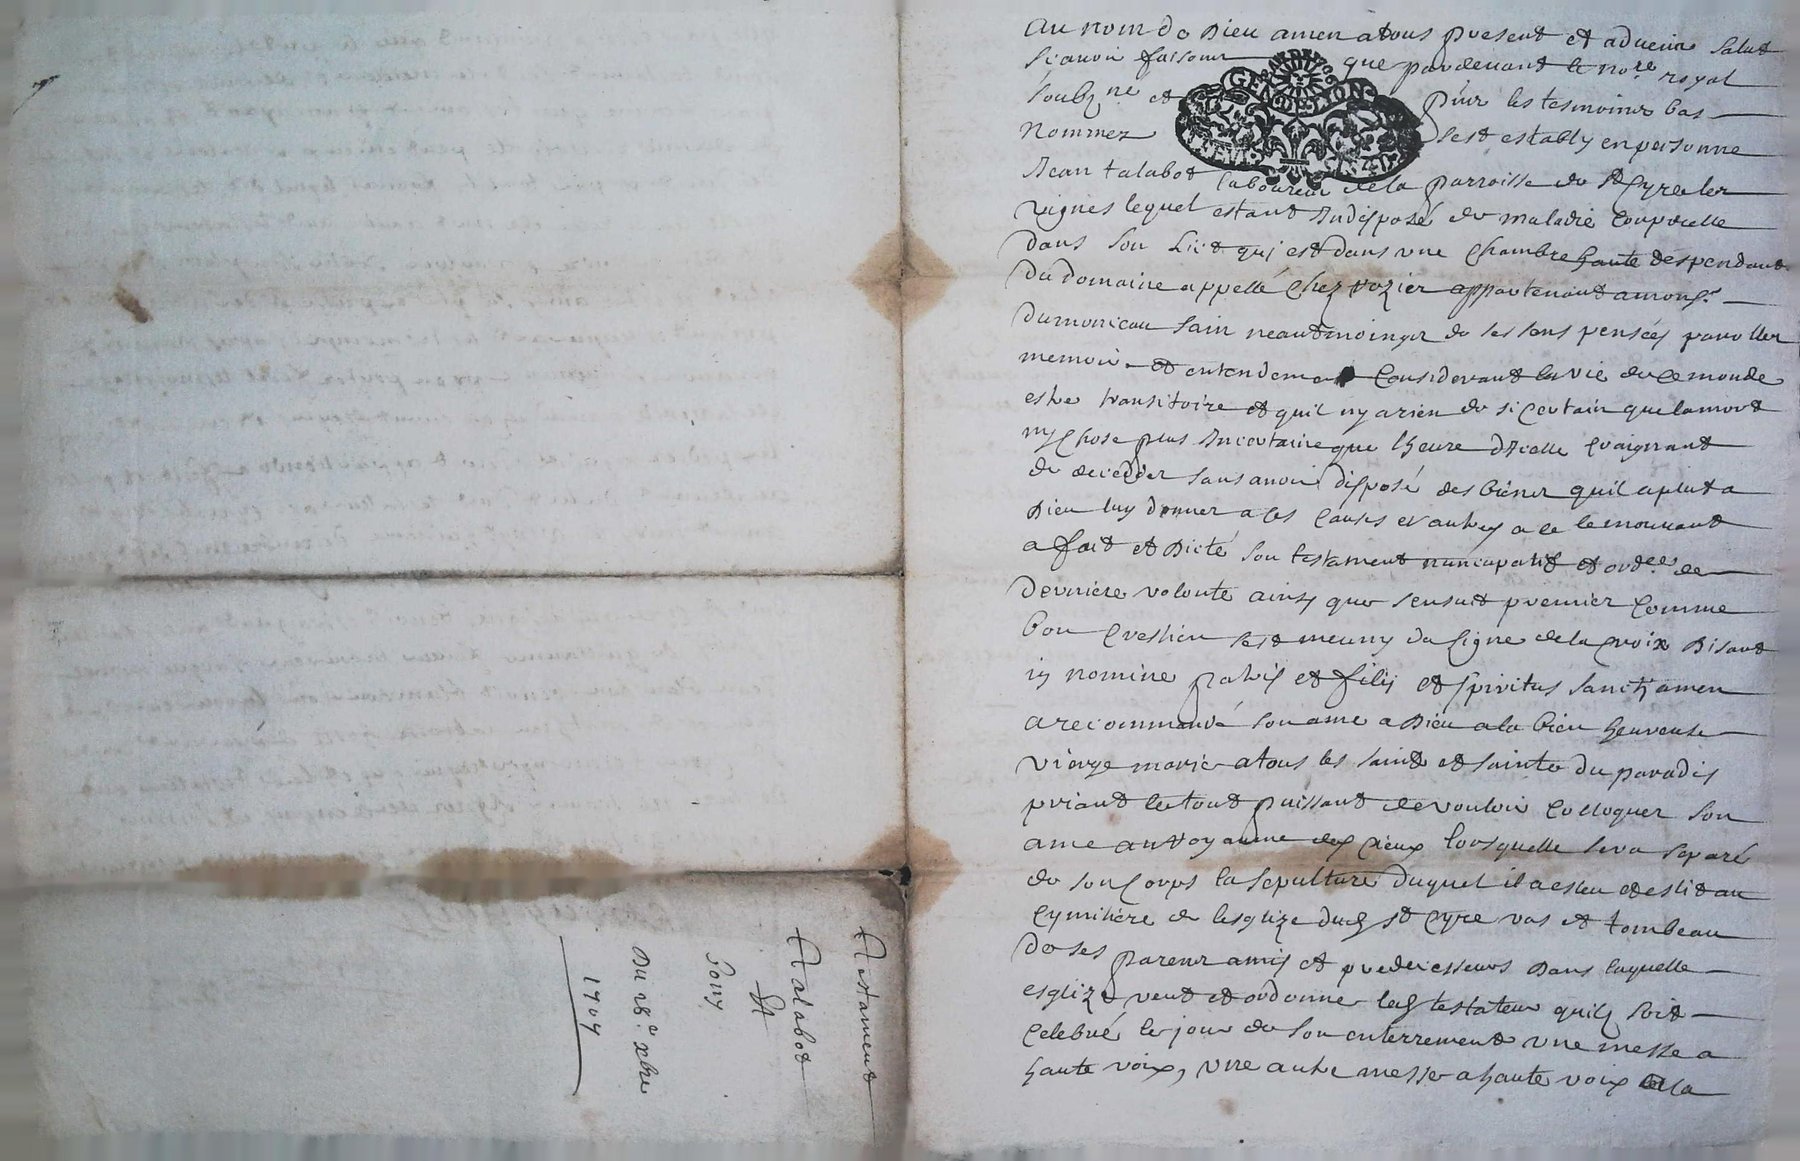 au nom de Dieu amen a tous present et advenir salut
scavoir faisons que pardevant le no.re royal
soubz.ne et pnr les tesmoins bas
nommez sest estably en personne
Jean talabot laboureur de la parroisse de St Cyre les
vignes lequel estant Indisposé de maladie Corporelle
dans son Lict qui est dans une Chambre haute despendant
du domaine appellé Chez vozier appartenant a mons.r
dumonceau sain neantmoings de ses sens pensées parolles
memoire et entendement Considerant la vie de Ce monde
estre transitoire et quil ny a rien de si Certain que la mort
ny Chose plus Incertaine que lheure dIcelle Craignant
de deceder sans avoir disposé des biens quil a plut a
Dieu luy donner a Ces Causes et autres a ce le mouvant
a fait et Dicté son testament nuncupatif et ord.ce de
derniere volonté ainsy que sensuit premier Comme
bon Crestien sest meuny du signe de la Croix Disant
in nomine patris et filij et spiritus sancty amen
a recommandé son ame a Dieu a la bien heureuse
vierge marie a tous les saints et saintes du paradis
priant le tout puissant de vouloir Colloquer son
ame au royaume des Cieux lorsquelle sera separé
de son Corps la sepulture duquel il a esleu et eslit au
Cymitiere de lesglize dud St Cyre vas et tombeau
de ses parens amis et predecesseurs Dans laquelle
esglize veut et ordonne led testateur quil soit
Celebré le jour de son enterrement une messe a
haute voix, une autre messe a haute voix a la
Testament
Talabot
Du 28.e xbre
1707